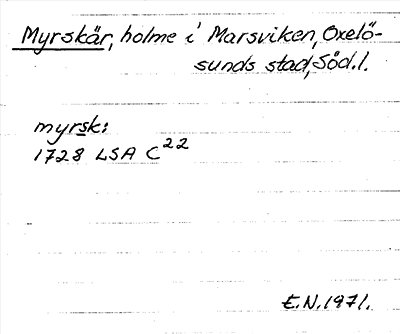 Myrskär, holme i Marsviken, Oxelö-
sunds stad, Söd.l.
myrsk:
1728 LSA C22
E.N.1971.